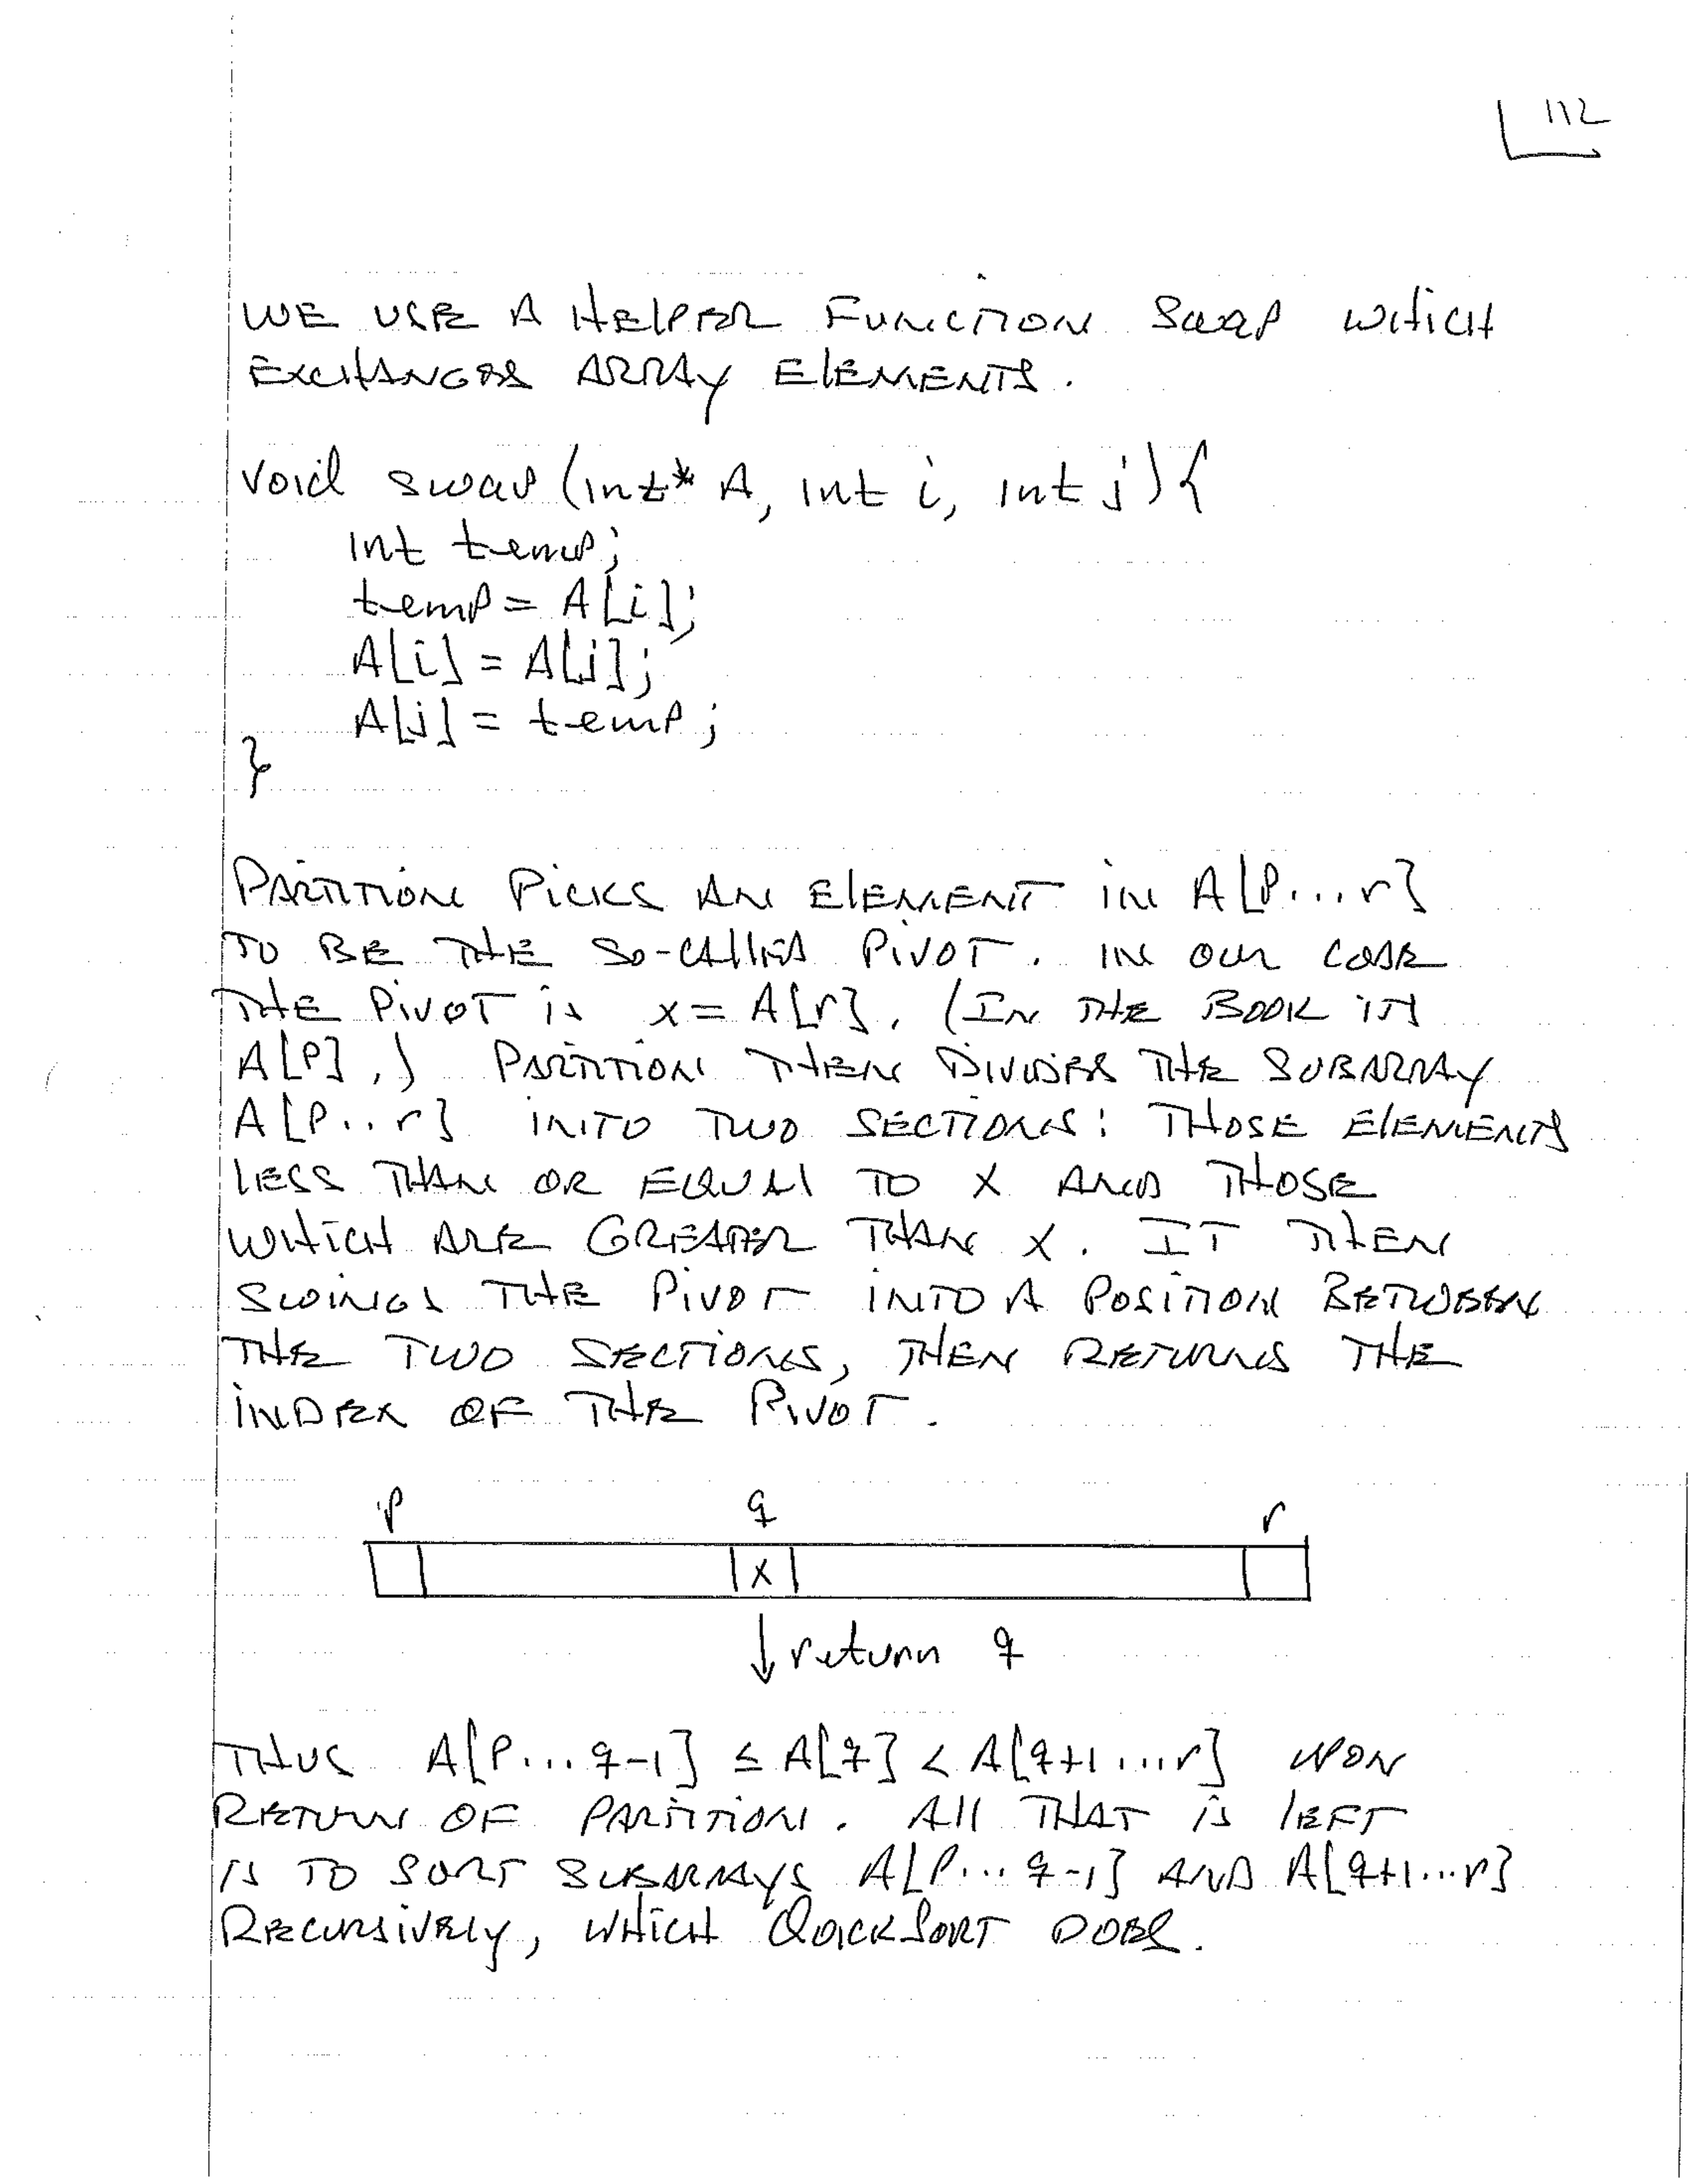 112
WE USE A HELPER FUNCTION SWAP WHICH
EXCHANGES ARRAY ELEMENTS.
void swap (int* A, int i, int j){
int temp;
temp = A[i];
A[i] = A[j];
A[j] = temp;
}
PARTITION PICKS AN ELEMENT IN A[P...r]
TO BE THE SO-CALLED PIVOT. IN OUR CODE
THE PIVOT IS x = A[r]. (IN THE BOOK ITS
A[P].) PARTITION THEN DIVIDES THE SUBARRAY
A[P..r] INTO TWO SECTIONS: THOSE ELEMENTS
LESS THAN OR EQUAL TO X AND THOSE
WHICH ARE GREATER THAN X. IT THEN
SWINGS THE PIVOT INTO A POSITION BETWEEN
THE TWO SECTIONS, THEN RETURNS THE
INDEX OF THE PIVOT.
p q r
x
↓ return q
THUS A[P...q-1] ≤ A[q] < A[q+1...r] UPON
RETURN OF PARTITION. ALL THAT IS LEFT
IS TO SORT SUBARRAYS A[P...q-1] AND A[q+1...r]
RECURSIVELY, WHICH QUICKSORT DOES.